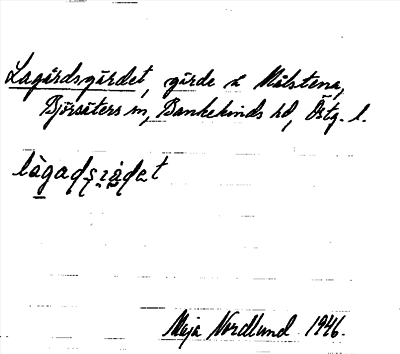 Lagårdsgärdet, gärde i Målstena,
Björsäters sn, Bankekinds hd, Östg. l.
Maja Nordlund 1946.